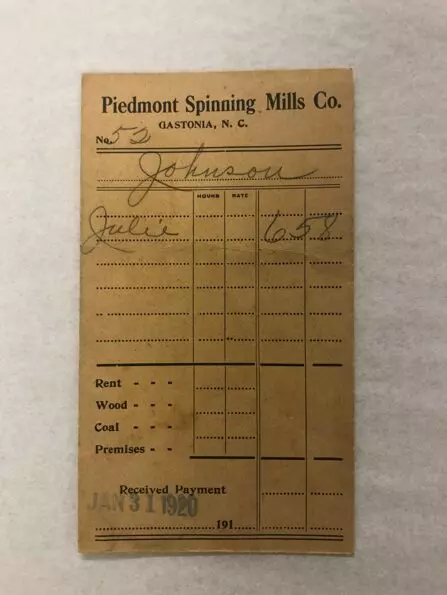 Piedmont Spinning Mills Co.
GASTONIA, N. C.
No. 52
Johnson
HOURS RATE
Julie 6 58
Rent - - -
Wood - - -
Coal - - -
Premises - -
Received Payment
JAN 31 1920
191